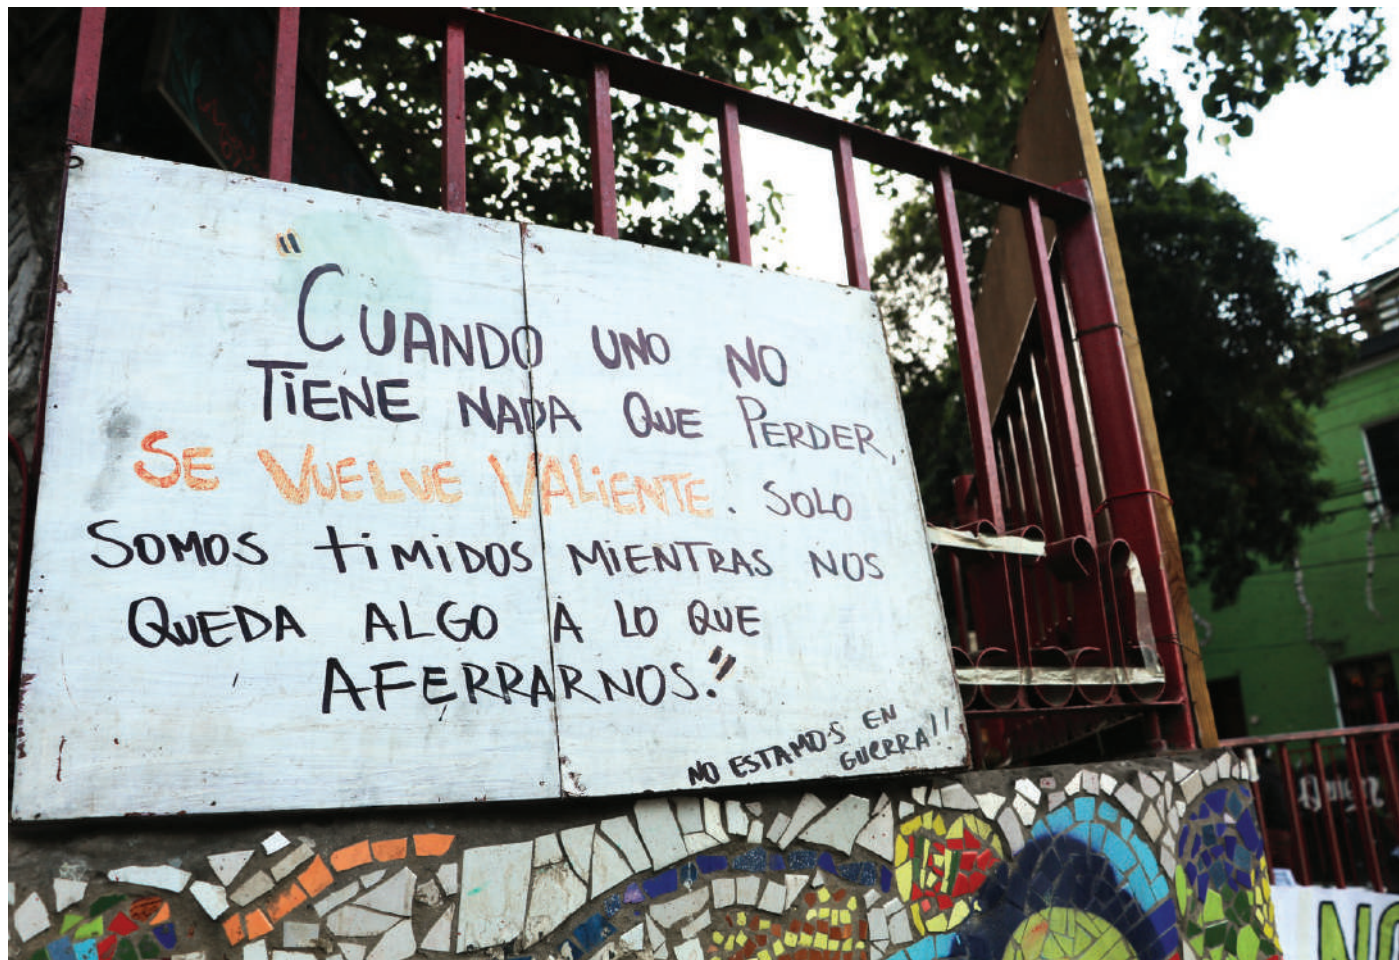 "CUANDO UNO NO
TIENE NADA QUE PERDER,
SE VUELVE VALIENTE. SOLO
SOMOS TIMIDOS MIENTRAS NOS
QUEDA ALGO A LO QUE
AFERRARNOS."
NO ESTAMOS EN
GUERRA!!
NO